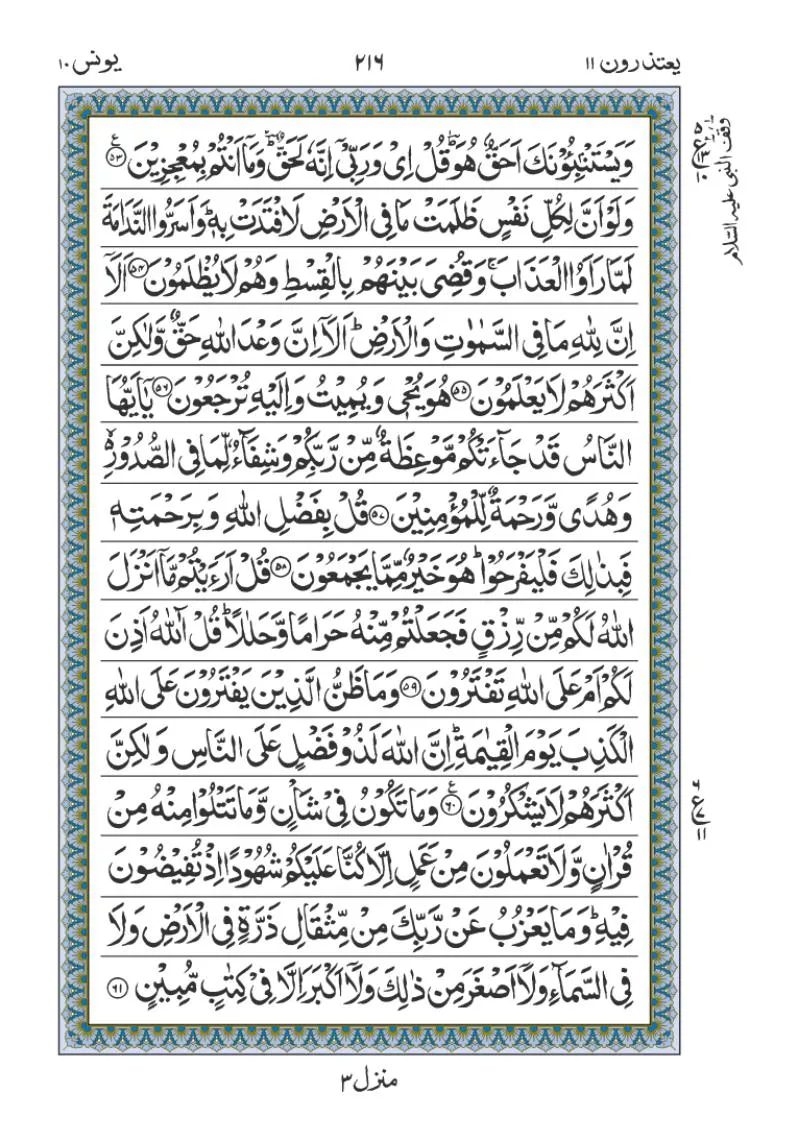 یعتذرون ۱۱ ۲۱۶ یونس ۱۰
وَيَسْتَنْۢبِـُٔوْنَكَ اَحَقٌّ هُوَ ؕ قُلْ اِیْ وَرَبِّیْۤ اِنَّهٗ لَحَقٌّ ؔؕ وَمَاۤ اَنْتُمْ بِمُعْجِزِيْنَ ﴿۵۳﴾ ع
وَلَوْ اَنَّ لِكُلِّ نَفْسٍ ظَلَمَتْ مَا فِی الْاَرْضِ لَافْتَدَتْ بِهٖ ؕ وَاَسَرُّوا النَّدَامَةَ
لَمَّا رَاَوُا الْعَذَابَ ۚ وَقُضِیَ بَيْنَهُمْ بِالْقِسْطِ وَهُمْ لَا يُظْلَمُوْنَ ﴿۵۴﴾ اَلَاۤ
اِنَّ لِلّٰهِ مَا فِی السَّمٰوٰتِ وَالْاَرْضِ ؕ اَلَاۤ اِنَّ وَعْدَ اللّٰهِ حَقٌّ وَّلٰكِنَّ
اَكْثَرَهُمْ لَا يَعْلَمُوْنَ ﴿۵۵﴾ هُوَ يُحْیٖ وَيُمِيْتُ وَاِلَيْهِ تُرْجَعُوْنَ ﴿۵۶﴾ يٰۤاَيُّهَا
النَّاسُ قَدْ جَآءَتْكُمْ مَّوْعِظَةٌ مِّنْ رَّبِّكُمْ وَشِفَآءٌ لِّمَا فِی الصُّدُوْرِ ۙ۬
وَهُدًی وَّرَحْمَةٌ لِّلْمُؤْمِنِيْنَ ﴿۵۷﴾ قُلْ بِفَضْلِ اللّٰهِ وَبِرَحْمَتِهٖ
فَبِذٰلِكَ فَلْيَفْرَحُوْا ؕ هُوَ خَيْرٌ مِّمَّا يَجْمَعُوْنَ ﴿۵۸﴾ قُلْ اَرَءَيْتُمْ مَّاۤ اَنْزَلَ
اللّٰهُ لَكُمْ مِّنْ رِّزْقٍ فَجَعَلْتُمْ مِّنْهُ حَرَامًا وَّحَلٰلًا ؕ قُلْ آٰللّٰهُ اَذِنَ
لَكُمْ اَمْ عَلَی اللّٰهِ تَفْتَرُوْنَ ﴿۵۹﴾ وَمَا ظَنُّ الَّذِيْنَ يَفْتَرُوْنَ عَلَی اللّٰهِ
الْكَذِبَ يَوْمَ الْقِيٰمَةِ ؕ اِنَّ اللّٰهَ لَذُوْ فَضْلٍ عَلَی النَّاسِ وَلٰكِنَّ
اَكْثَرَهُمْ لَا يَشْكُرُوْنَ ﴿۶۰﴾ ع وَمَا تَكُوْنُ فِیْ شَاْنٍ وَّمَا تَتْلُوْا مِنْهُ مِنْ
قُرْاٰنٍ وَّلَا تَعْمَلُوْنَ مِنْ عَمَلٍ اِلَّا كُنَّا عَلَيْكُمْ شُهُوْدًا اِذْ تُفِيْضُوْنَ
فِيْهِ ؕ وَمَا يَعْزُبُ عَنْ رَّبِّكَ مِنْ مِّثْقَالِ ذَرَّةٍ فِی الْاَرْضِ وَلَا
فِی السَّمَآءِ وَلَاۤ اَصْغَرَ مِنْ ذٰلِكَ وَلَاۤ اَكْبَرَ اِلَّا فِیْ كِتٰبٍ مُّبِيْنٍ ﴿۶۱﴾
وقف النبی علیہ السّلام
منزل ۳